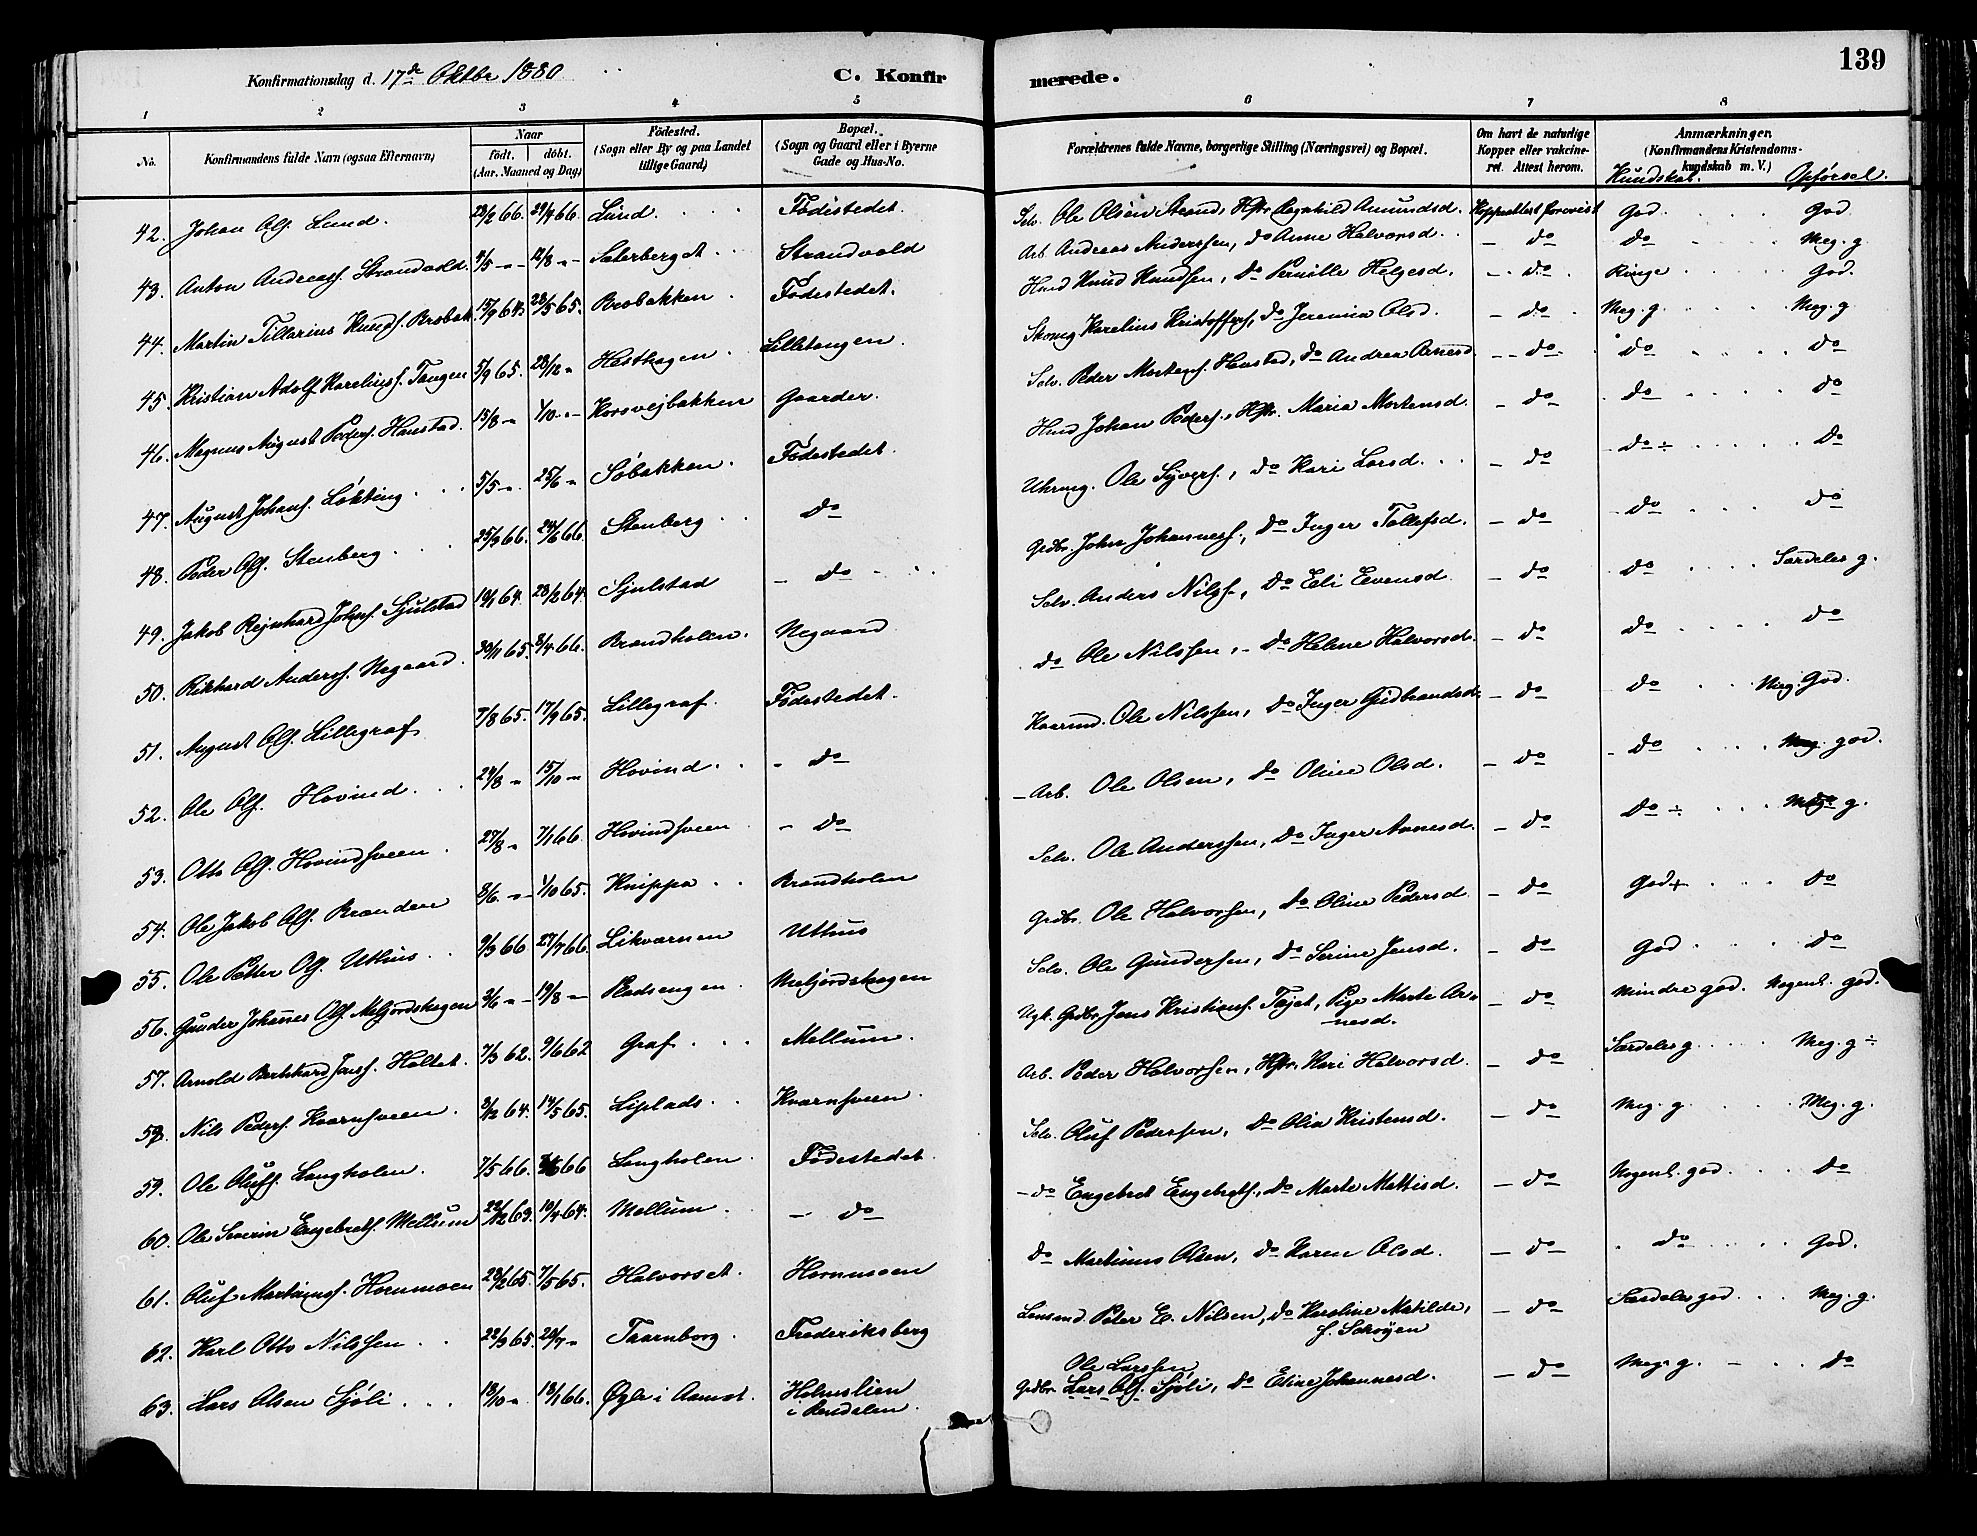 139
Konfirmationsdag d. 17de Oktbr 1880 C. Konfirmerede.
1 2 3 4 5 6 7 8
No. Konfirmandens fulde Navn (ogsaa Efternavn) Naar födt. döbt. (Aar, Maaned og Dag) Födested. (Sogn eller By og paa Landet tillige Gaard) Bopæl. (Sogn og Gaard eller i Byerne Gade og Hus-No. Forældrenes fulde Navne, borgerlige Stilling (Næringsvei) og Bopæl. Om havt de naturlige Kopper eller vakcineret. Attest herom. Anmærkninger. (Konfirmandens Kristendomskundskab m. V.) Kundskab. Opførsel.
42. Johan Ols. Lund. 23/2 66. 29/4 66. Lund Fødestedet. Selv. Ole Olsen Strand, Hstr Ragnhild Amundsd. Koppeattest forevist God God
43. Anton Andreass. Strandvold. 4/5 - - 12/8 - - Sæterberget Strandvold Arb. Andreas Anderssen, do Anne Halvorsd. - do do Meg. g.
44. Martin Tillarius Knuds. Brobak. 15/9 64. 28/5 65. Brobakken Fødestedet. Husd Knud Knudsen, do Pernille Helgesd. - do Ringe God.
45. Kristian Adolf Kareliuss. Tangen 5/9 65. 28/12 " Hesthagen Lilletangen Skomg Karelius Kristoffers, do Jeremia Olsd. - do Meg. g Meg. g
46. Magnus August Peders. Hanstad. 15/8 - 1/10 - Korsvejbakken Gaarder. Selv. Peder Mortens. Hanstad, do Andrea Arnesd. - do do do
47. August Johans. Løkting 5/5 - 25/6 " Søbakken. Fødestedet. Husd Johan Peders., Hstr. Maria Mortensd. - do do do
48. Peder Ols. Stenberg 25/3 66. 24/6 66. Stenberg do Uhrmg. Ole Syvers., do Kari Larsd. - do do ÷ do
49. Jakob Rejnhard Johns. Sjulstad 19/1 64. 28/2 64. Sjulstad - do - Grdbr. John Johanness., do Inger Tollefsd. - do do do
50. Rikhard Anders. Negaard. 30/11 65. 8/4 66. Brandholen. Negaard Selv. Anders Nilss., do Eli Evensd. - do do Særdeles g.
51. August Ols. Lillegraf 7/8 65. 17/9 65. Lillegraf. Fødestedet. do Ole Nilssen, - do Helene Halvorsd. - do do do
52. Ole Ols. Hovind. 24/8 - 15/10 - Hovind. - do Kaarmd. Ole Nilssen, do Inger Gudbrandsd. - do do Meg. God.
53. Otto Ols. Hovindsveen. 27/8 " 7/1 66. Hovindsveen - do - Arb. Ole Olsen, do Oline Olsd. - do do god.
54. Ole Jakob Ols. Branden 8/6. - - 1/10 65. Knippa Brandholen Selv. Ole Anderssen, do Inger Arnesd. - do do ÷ Meg. g.
55. Ole Petter Ols. Uthus 9/3 66 27/7 66. Likværnen Uthus Grdbr. Ole Halvorssen, do Oline Pedersd. - do God+ do
56. Gunder Johannes Ols. Meljordskogen 3/6 - - 19/8 - Pladsengen Meljordskogen Selv. Ole Gundersen, do Serine Jensd. - do God do
57. Arnold Berthard Jens. Holtet. 7/3 62. 9/6 62 Graf Mellum. Ugk. Grdbr Jens Kristians. Tøjet, Pige Marte Arnesd. - do Mindre god. Nogenl. god.
58. Nils Peders. Kvarnsveen. 8/12 64. 14/5 65. Liplads Kvarnsveen Arb. Peder Halvorsen, Hstr. Kari Halvorsd. - do Særdeles g Meg. g ÷
59. Ole Olufs. Langholen. 7/5 66. 66 Langholen Fødestedet. Selv. Oluf Pederssen, do Olia Kristensd. - do Meg. g. Meg. g.
60. Ole Severin Engebrets. Mellum 22/12 63. 10/4 64. Mellum - do - do Engebret Engebrets., do Marte Mattisd. - do Nogenl. god do
61. Oluf Martinuss. Hornmoen 28/2 65. 7/5 65. Halvorset. Hornmoen do Martinus Olsen, do Karen Olsd. - do do God.
62. Karl Otto Nilssen 22/3 65. 20/7 " Taarnborg. Frederiksberg Lensmd. Peter E. Nilsen, do Karoline Matilde, f. Schøyen - do Særdeles god Meg. g.
63. Lars Olsen Sjøli 18/10 " 18/1 66. Øgle i Aamot. Holmslien i Rendalen. Grdbr. Ole Larssen Lars Ols. Sjøli, do Eline Johannesd. - do Meg. g. do